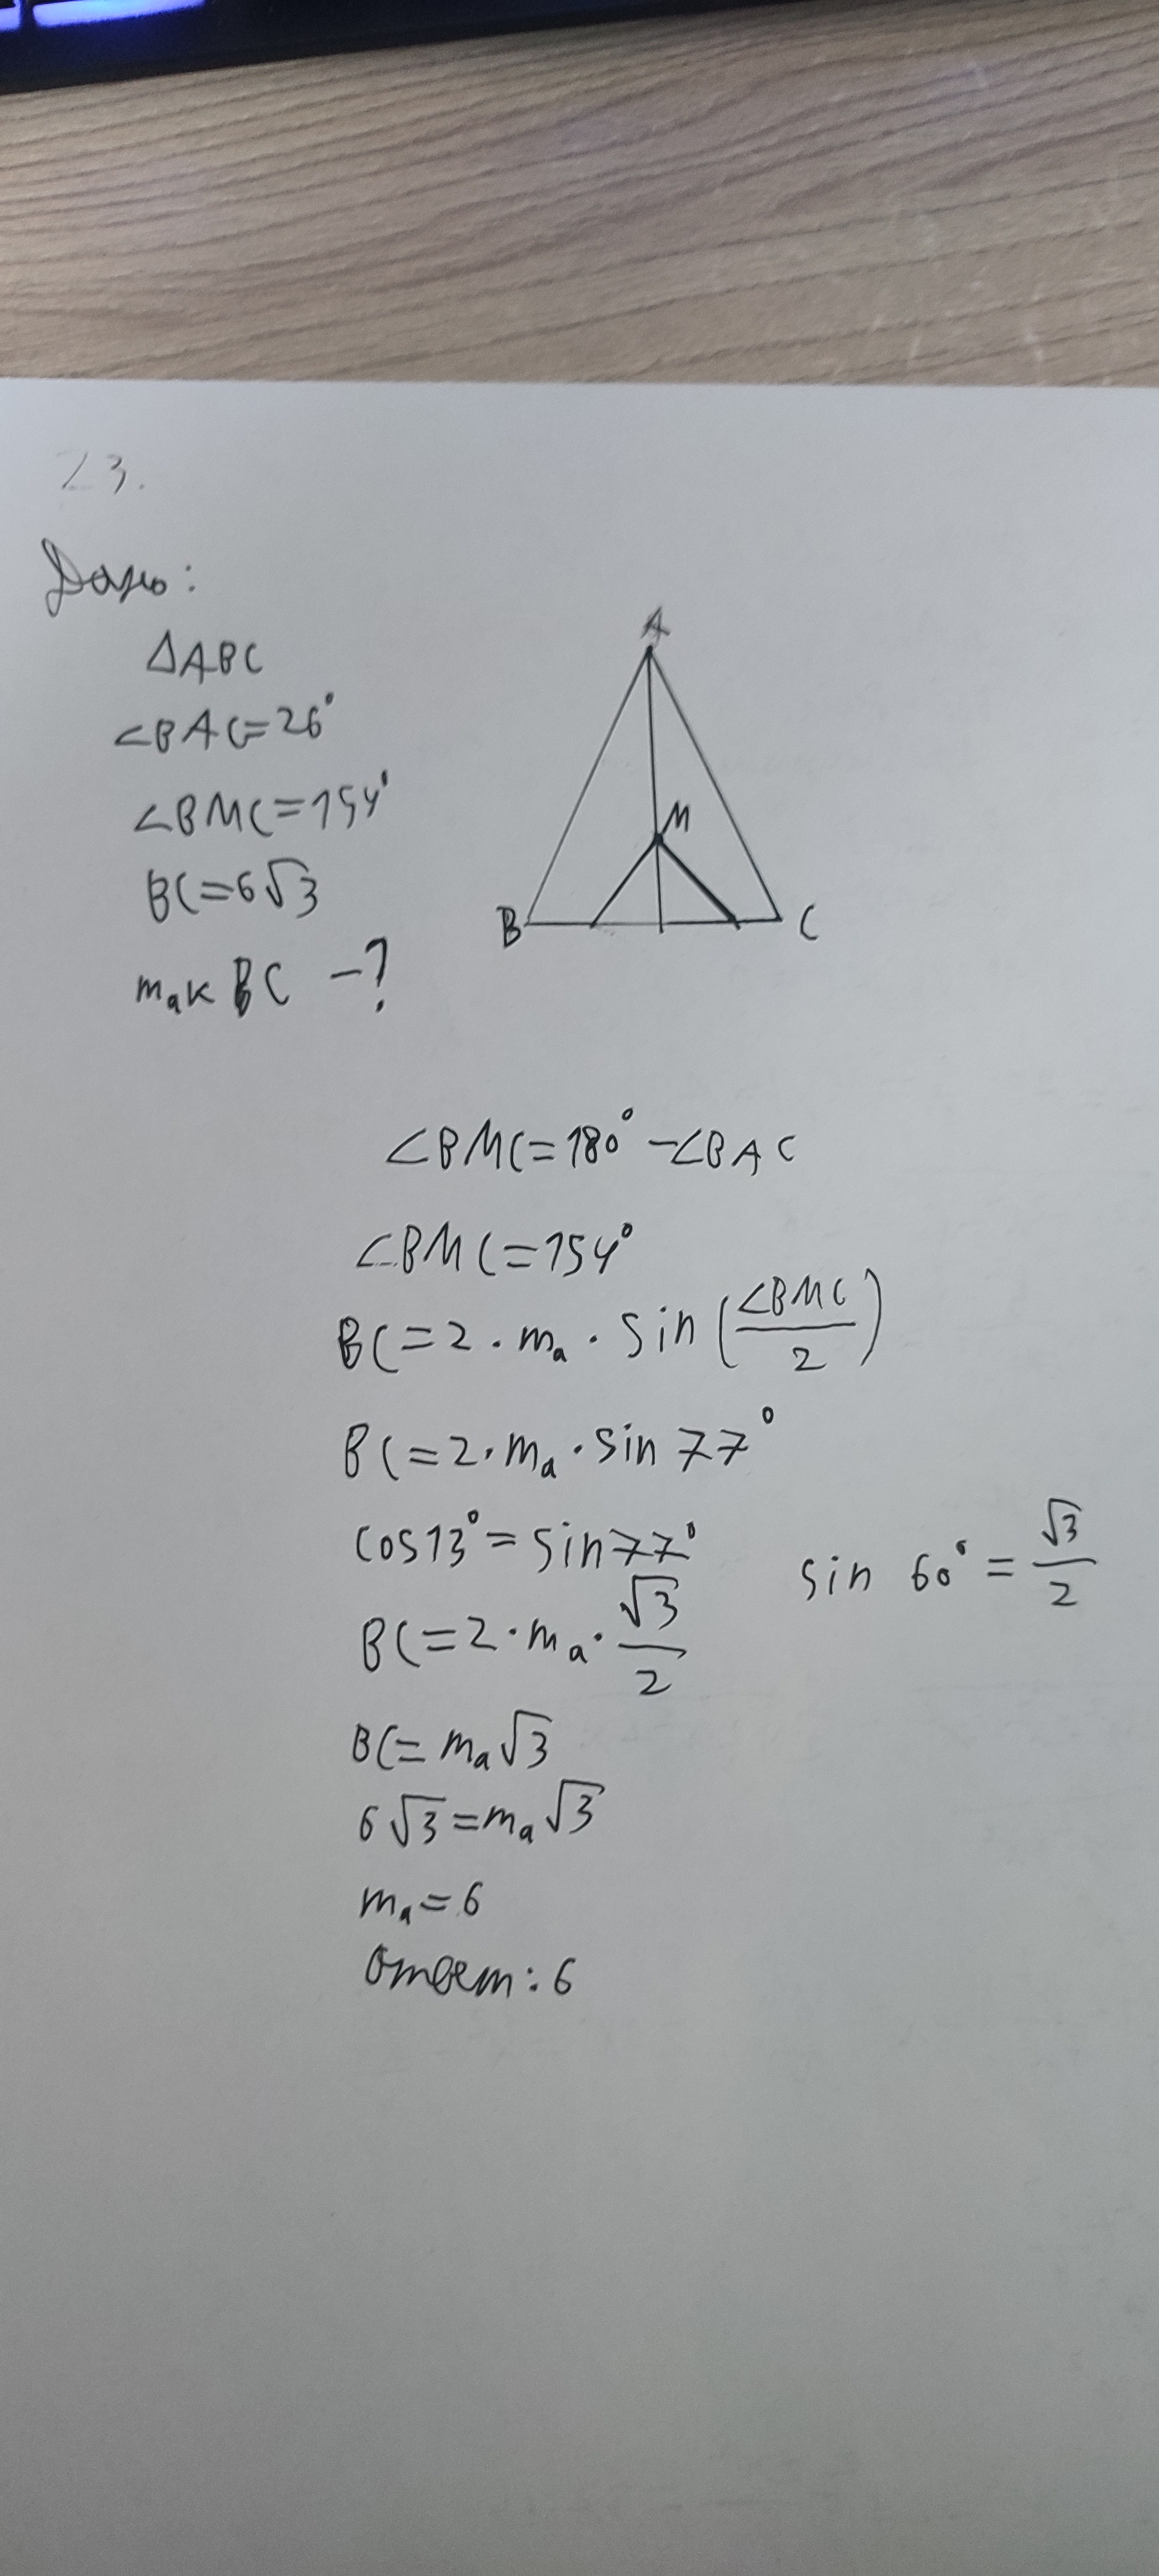 23.
Дано:
△ABC
∠BAC=26°
∠BMC=154°
BC=6√3
mₐ к BC -?
A
M
B
C
∠BMC=180°-∠BAC
∠BMC=154°
BC=2·mₐ·sin(∠BMC/2)
BC=2·mₐ·sin77°
cos13°=sin77°
sin 60°=√3/2
BC=2·mₐ·√3/2
BC=mₐ√3
6√3=mₐ√3
mₐ=6
Ответ: 6